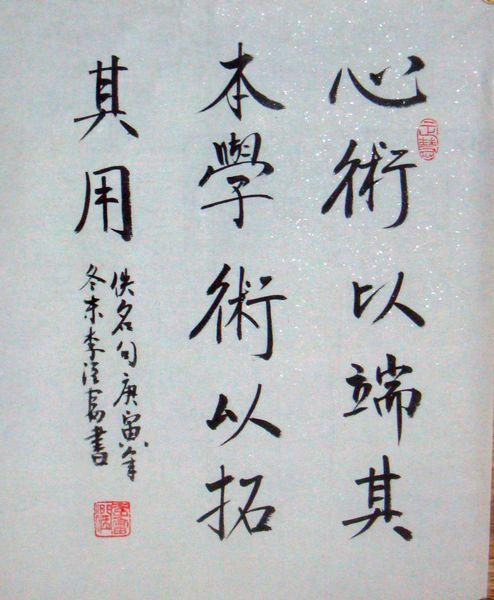 心術以端其
本學術以拓
其用
佚名句庚寅年
冬末李澤高書